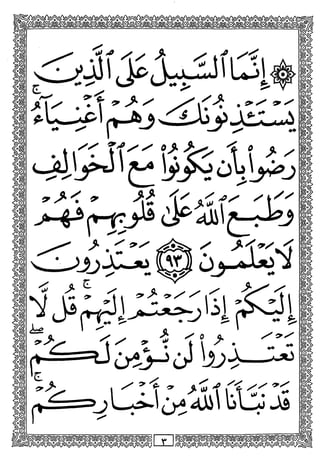 ۞ إِنَّمَا ٱلسَّبِيلُ عَلَى ٱلَّذِينَ
يَسْتَـْٔذِنُونَكَ وَهُمْ أَغْنِيَآءُۚ
رَضُوا۟ بِأَن يَكُونُوا۟ مَعَ ٱلْخَوَالِفِ
وَطَبَعَ ٱللَّهُ عَلَىٰ قُلُوبِهِمْ فَهُمْ
لَا يَعْلَمُونَ ٩٣ يَعْتَذِرُونَ
إِلَيْكُمْ إِذَا رَجَعْتُمْ إِلَيْهِمْۚ قُل لَّا
تَعْتَذِرُوا۟ لَن نُّؤْمِنَ لَكُمْۖ
قَدْ نَبَّأَنَا ٱللَّهُ مِنْ أَخْبَارِكُمْۚ
٣